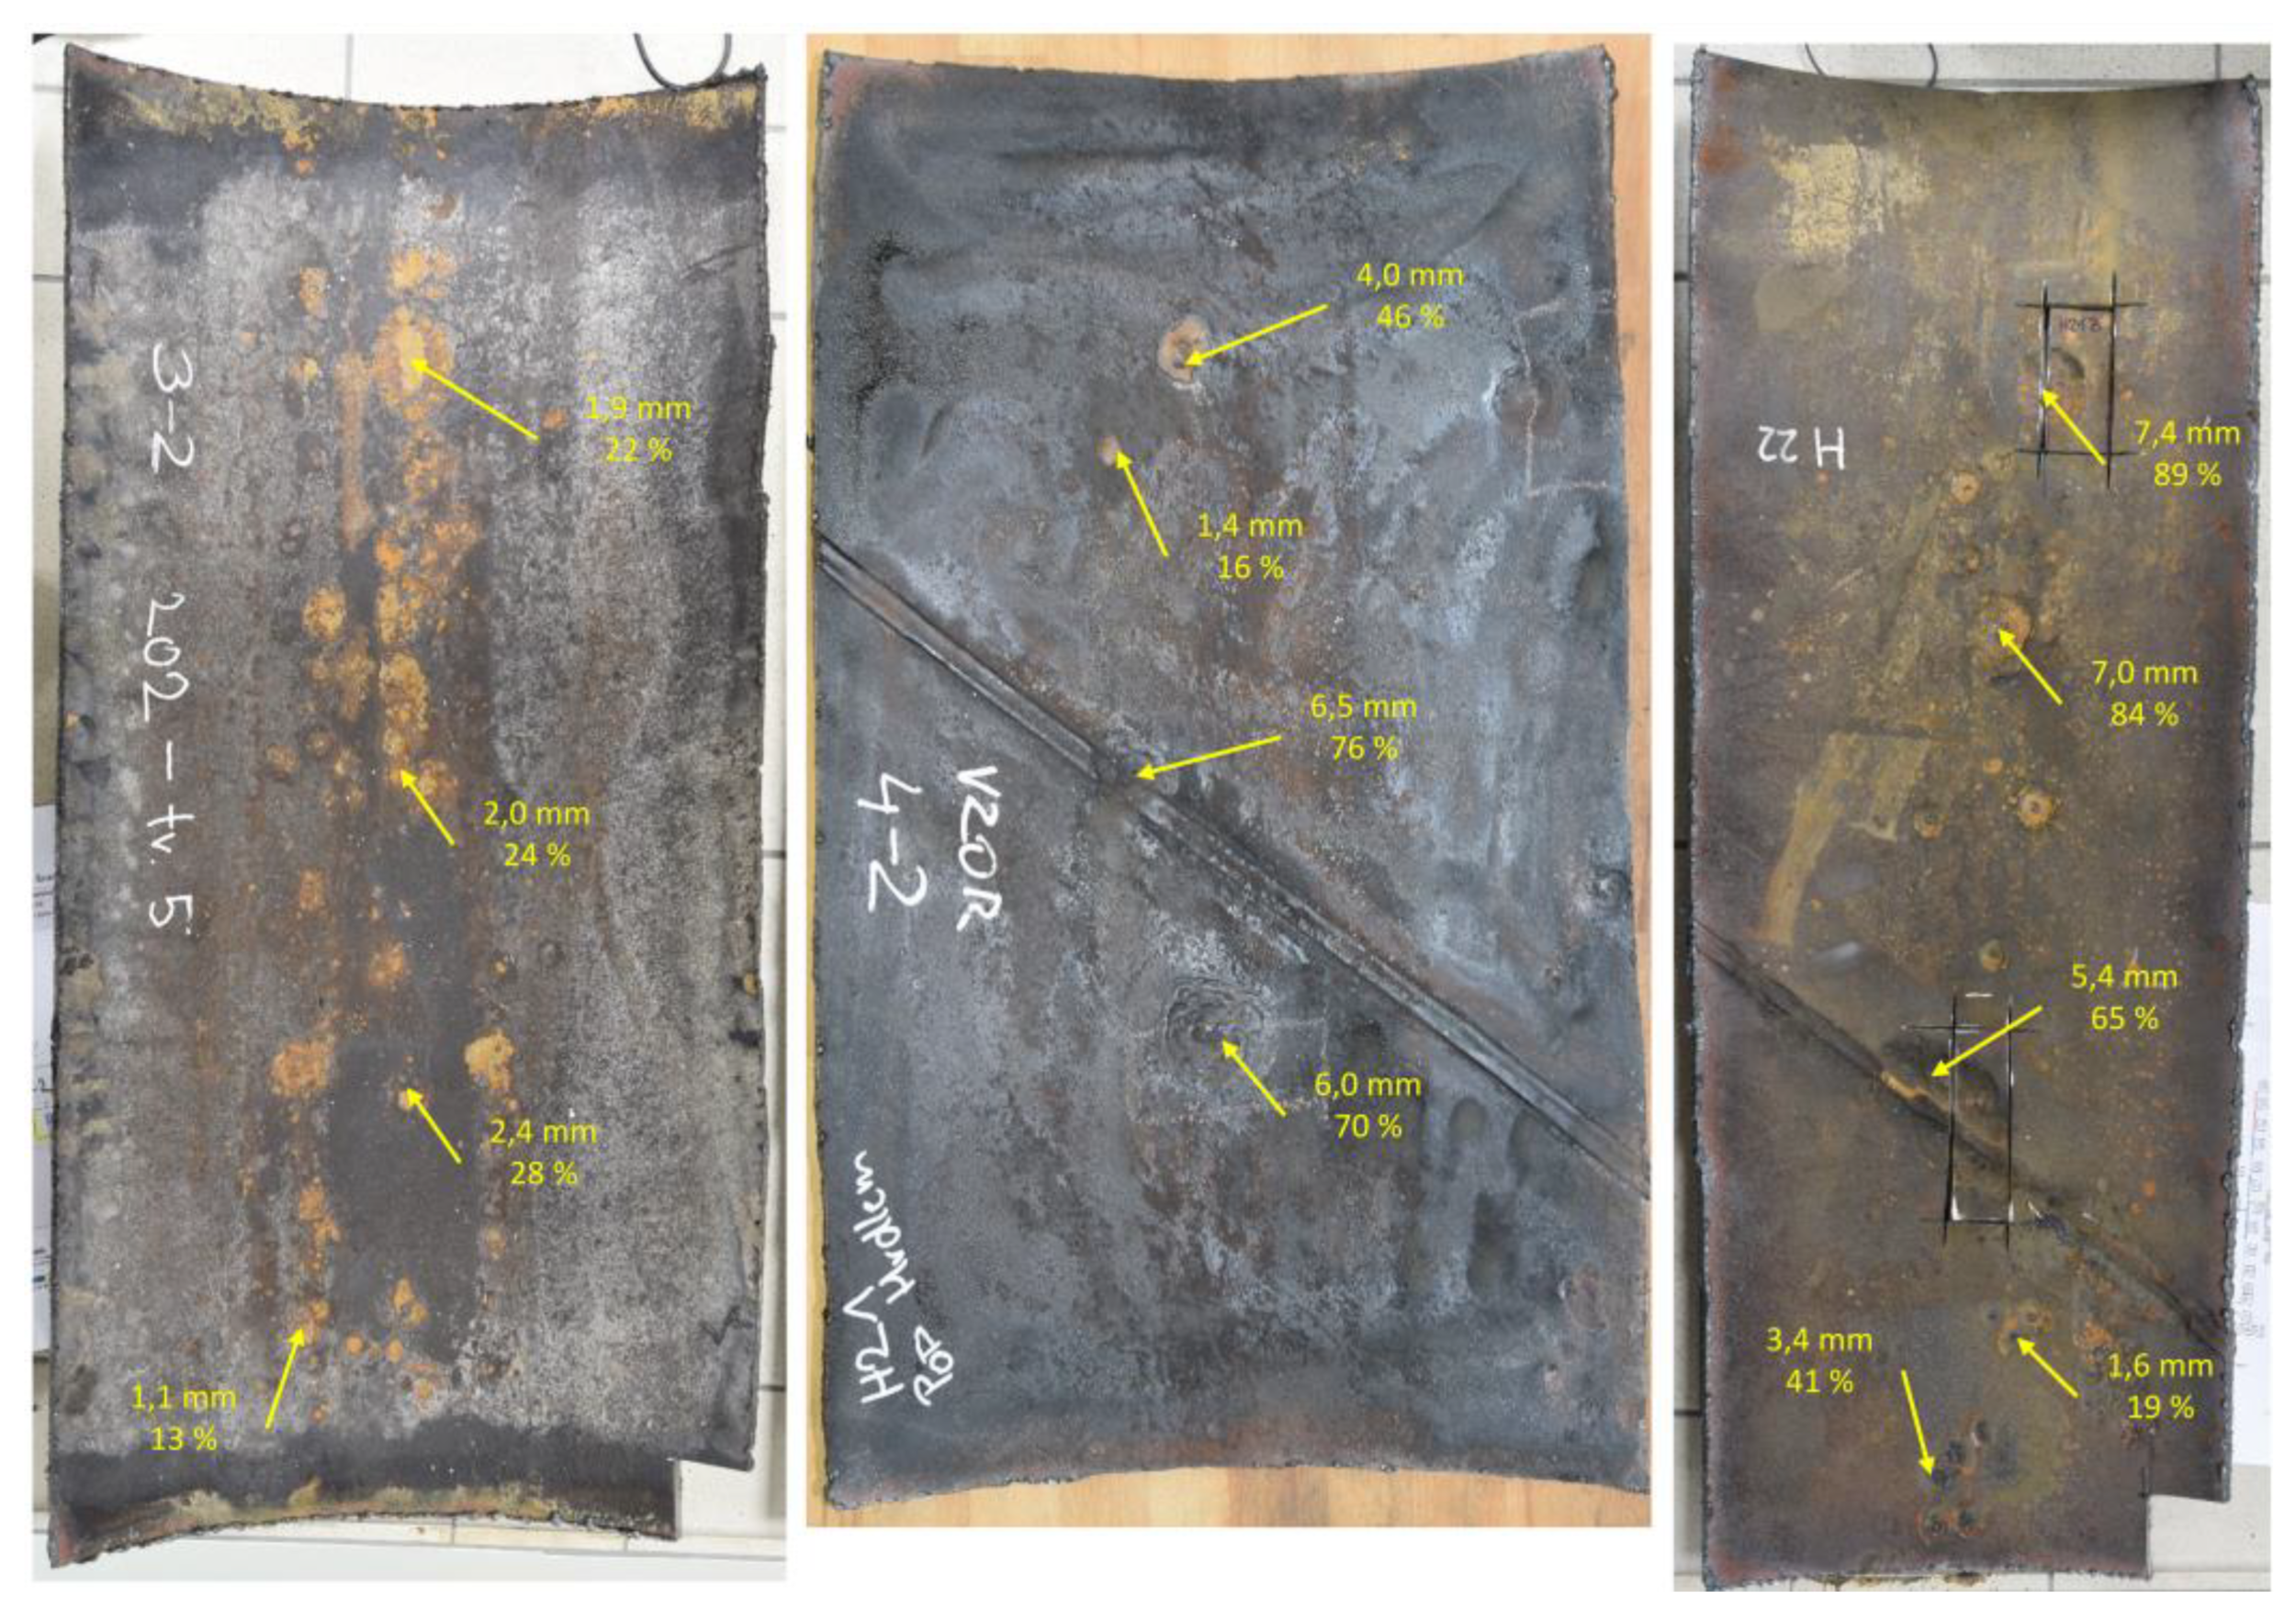 3-2 202 - tv. 5
1,9 mm
22 %
2,0 mm
24 %
2,4 mm
28 %
1,1 mm
13 %
4,0 mm
46 %
1,4 mm
16 %
6,5 mm
76 %
VZOR
4-2
6,0 mm
70 %
POD
H 22
7,4 mm
89 %
7,0 mm
84 %
5,4 mm
65 %
3,4 mm
41 %
1,6 mm
19 %